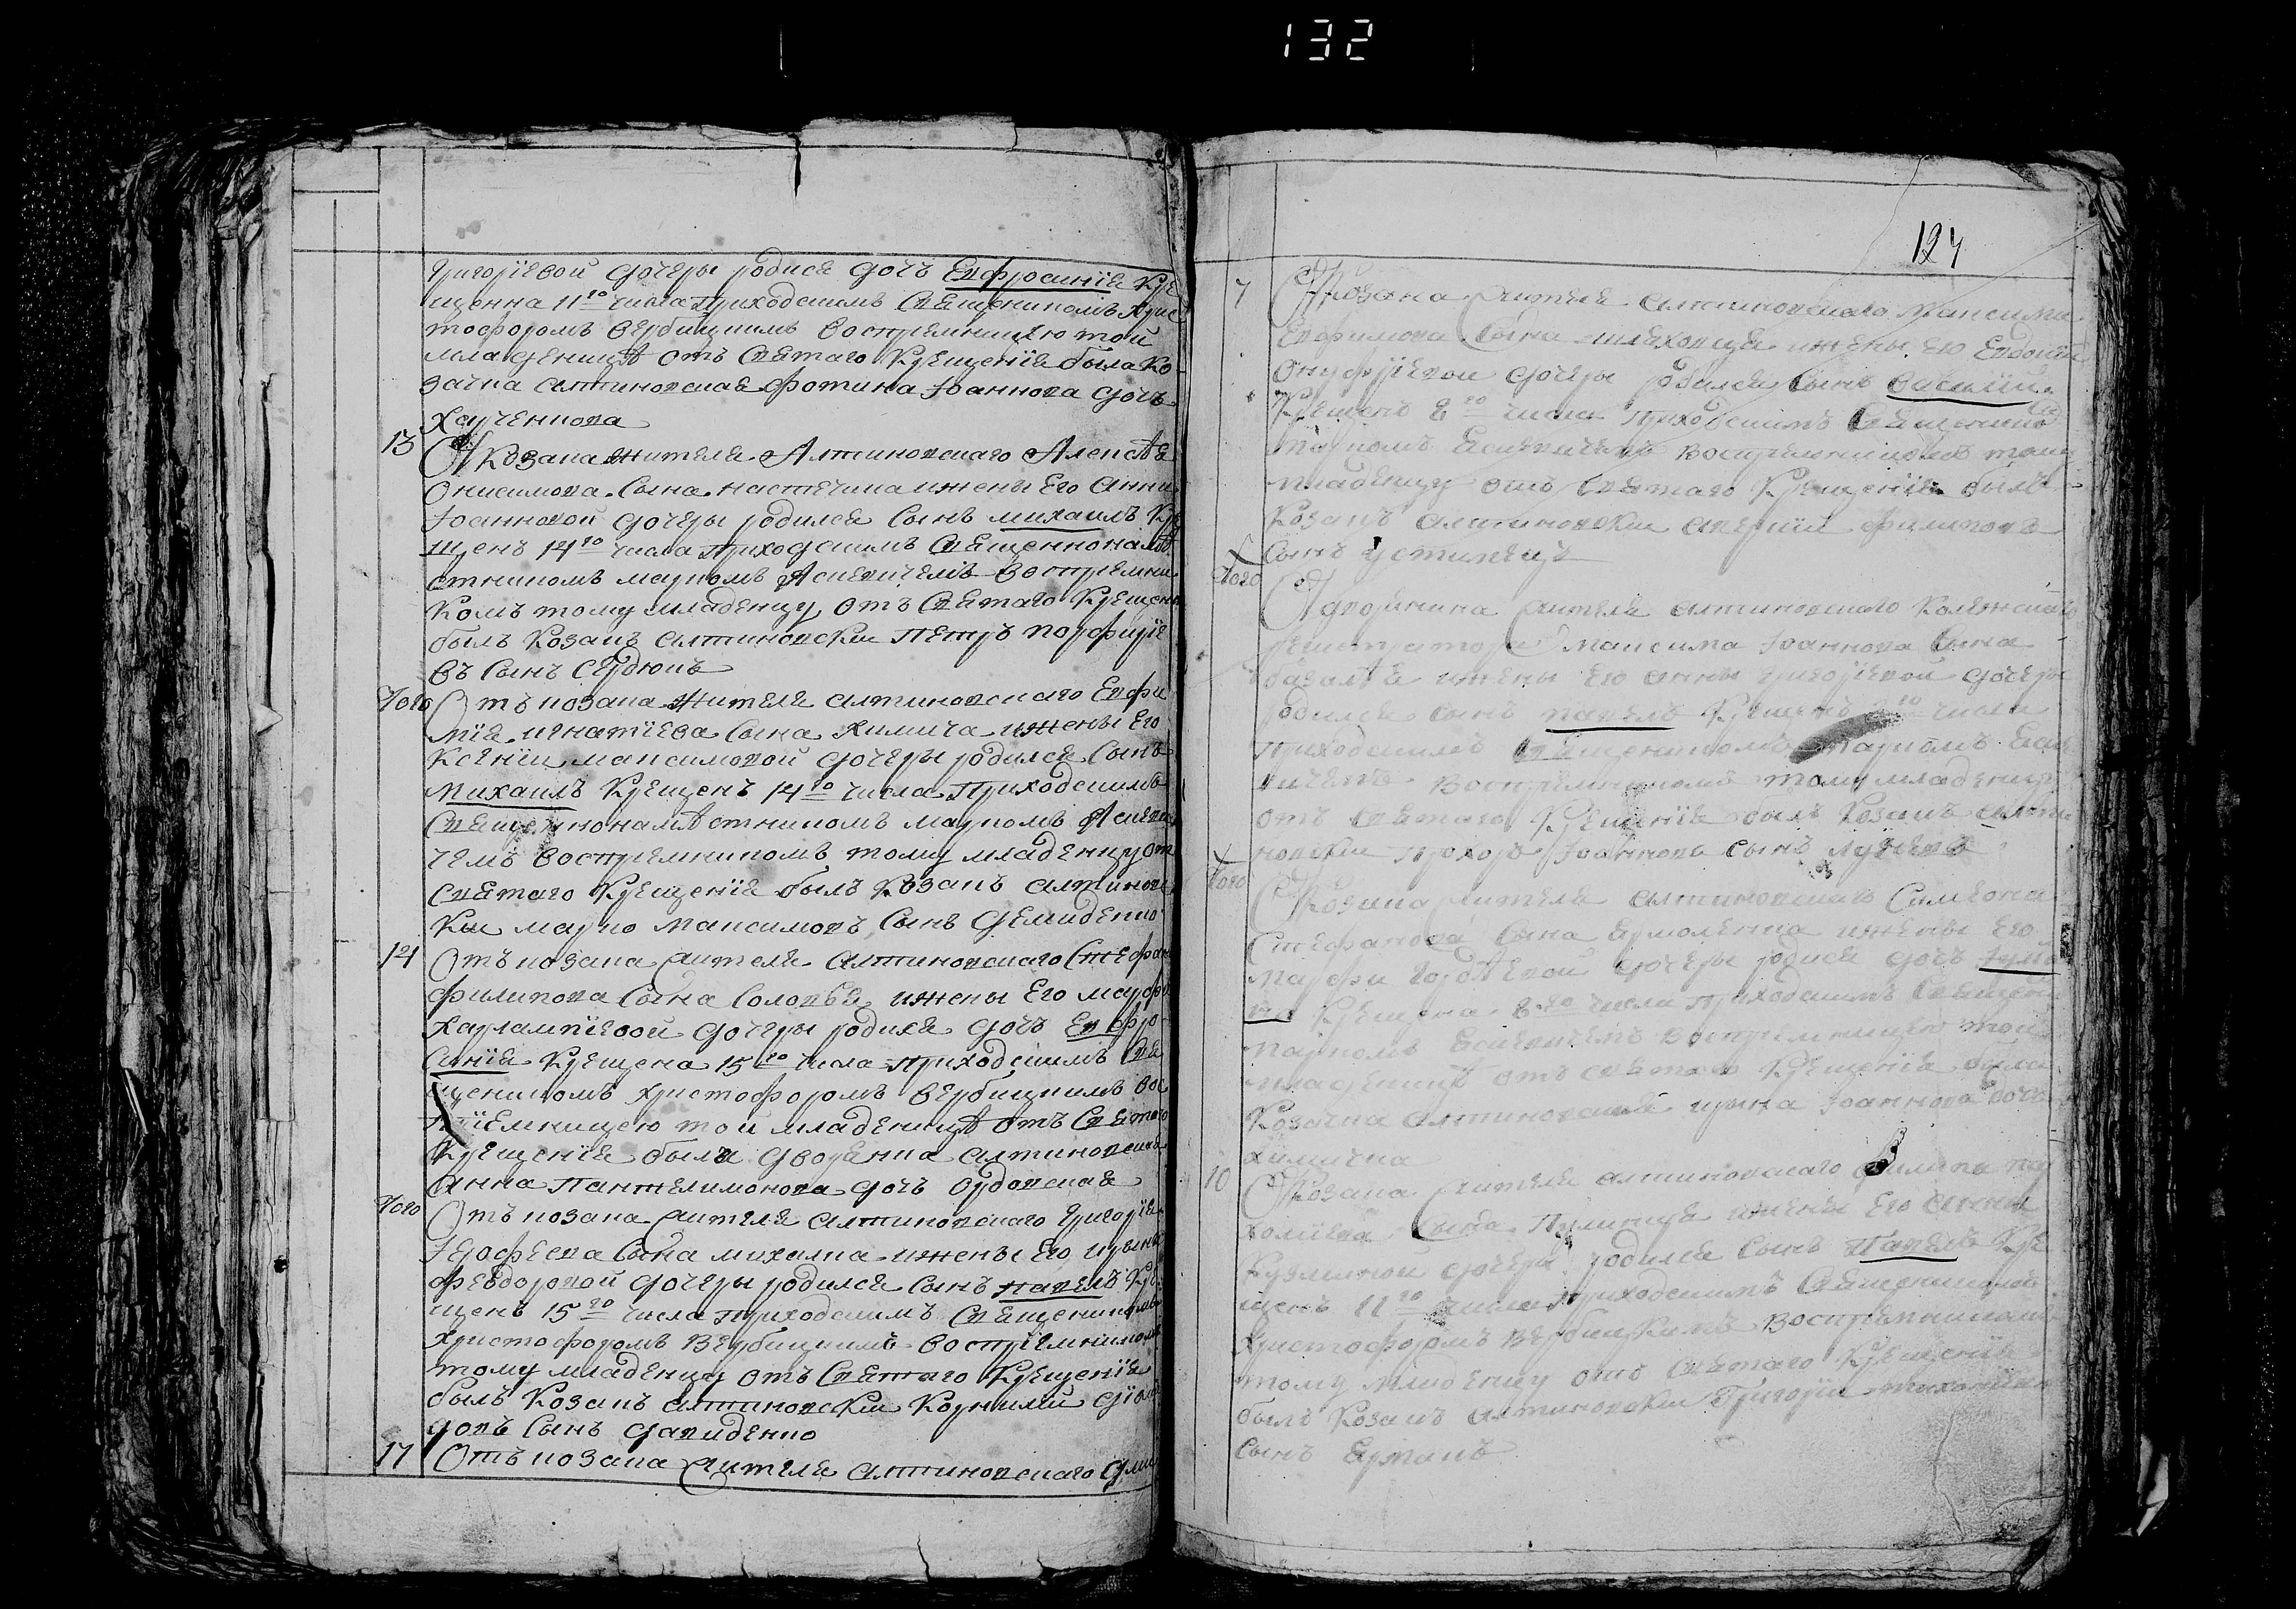 132
Григорїевой дочеры родися дочь Евфросинїя Кре
щенна 11го числа Приходским Священником Хрис
тофором Вербицким Восприемницею той
младеницѣ отъ Святаго Крещенїя была Ко
зачка алтиновская фотина Іоаннова дочь
Харченкова
13
От Козака Жителя Алтиновского Алексѣя
Онисимова Сына ижены Его Анны
Іоанновой дочеры родился Сынъ михаилъ Кре
щенъ 14го числа Приходским Священнонамѣ
стником марком Ясневичемъ Восприемни
Комъ тому младенцу отъ Святаго Крещен
былъ Козакъ алтиновски Петръ порфирїе
въ Сынъ Сердюкъ
Того
Отъ козака Жителя алтиновского Евфи
мїя игнатїева Сына Химича ижены Его
Ксенїи максимовой дочеры родился Сынъ
Михаилъ Крещенъ 14го числа Приходским
Священнонамѣстником марком Ясневи
чемъ восприемником тому младенцу от
Святаго Крещенїя былъ Козакъ алтиновс
Ки марко максимовъ Сынъ демиденко
14
Отъ козака жителя алтиновского Стефана
филипова Сына Соловья ижены Его марфы
Харлампїевой дочеры родися дочь Евфро
Синїя Крещена 15го числа приходским Свя
щеником христофором вербицким вос
прїемницею той младеницѣ отъ Святаго
Крещенїя была дворянка алтиновская
анна Пантелимонова дочь Ордовская
Того
Отъ козака жителя алтиновского Григорїя
Іерофеева Сына михалка ижены Его ирыны
феодоровой дочеры родился Сынъ павелъ Кре
щенъ 15го числа Приходским Священиком
Христофором Вербицким Восприемником
тому младенцу отъ Святаго Крещенїя
былъ Козакъ алтиновски Корнилий дїоми
довъ Сынъ давиденко
17
Отъ козака жителя алтиновского
124
7
От Козака жителя алтиновского максима
Евфимова Сына ижены его Евдокїи
Онуфрїевой дочеры родился Сынъ василїй
Крещенъ 8го числа приходским Священико
марком Ясневичемъ Восприемником тому
младенцу отъ Святаго Крещенїя былъ
Козакъ алтиновски филиповъ
Сынъ Устименко
Того
От дворянина жителя алтиновского Колежского
регистратора максима Іоаннова Сына
ижены Его анны григорїевой дочеры
родился сынъ павелъ Крещенъ числа
приходским Священиком марком Ясне
вичемъ восприемником тому младенцу
отъ Святаго Крещенїя былъ Козакъ алти
новски прохоръ Іоанновъ Сынъ
Того
От Козака жителя алтиновского Симеона
Стефанова Сына Ермоленка ижены Его
марфы гордѣевой дочеры родися дочь Іулї
Крещена 8го числа приходским Священ
марком Ясневичемъ восприемницею той
младеницѣ отъ святаго Крещенїя была
Козачка алтиновская ирына Іоаннова дочь
химичка
10
От Козака жителя алтиновского филипа
Сына ижены Его
Кузминой дочеры родился Сынъ Павелъ Кре
щенъ 11го числа приходским Священиком
Христофором Вербицким Восприемником
тому младенцу отъ Святаго Крещенїя
былъ Козакъ алтиновски Григорїи
сынъ